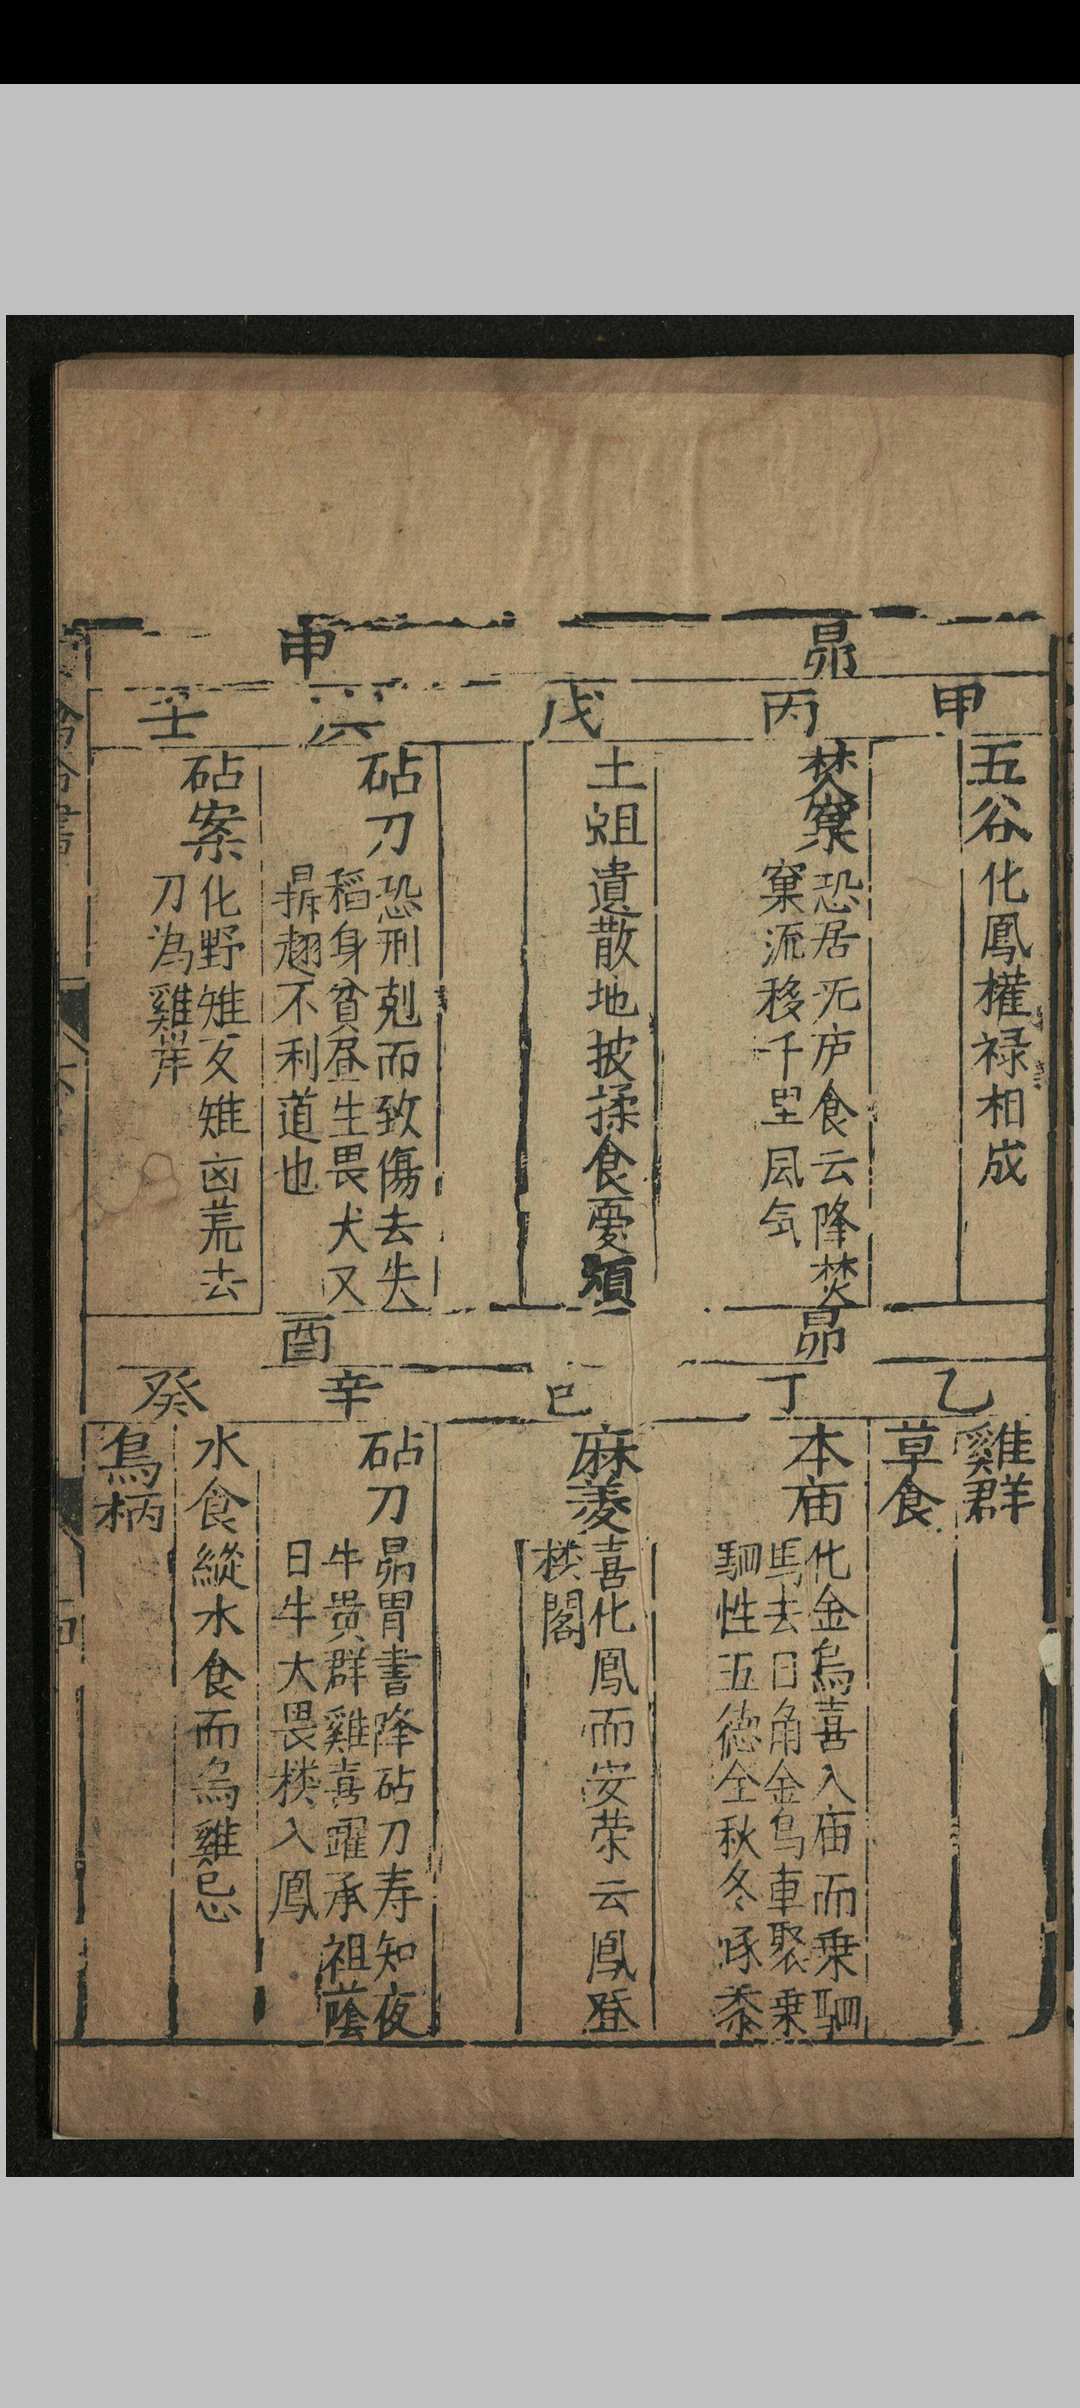 昴
甲
五谷
化鳳權禄相成
丙
焚窠
恐居无庐食云降焚
窠流移千里凨气
申
戊
土蛆
遺散地披揉食憂煩
砧刀
恐刑剋而致傷去失
稻身貧昼生畏犬又
翹不利道也
壬
砧案
化野雉友雉凶荒去
刀為雞岸
昴
乙
雞群
草食
丁
本庙
化金烏喜入庙而乗駟
馬去日角金烏車聚乗
駟性五德全秋冬啄黍
酉
巳
麻菱
喜化鳳而安荣云鳳登
楼閣
辛
砧刀
昴胃書降砧刀寿知夜
牛貴群雞喜躍承祖蔭
日牛大畏楼入鳳
癸
水食
縱水食而烏雞忌
烏柄